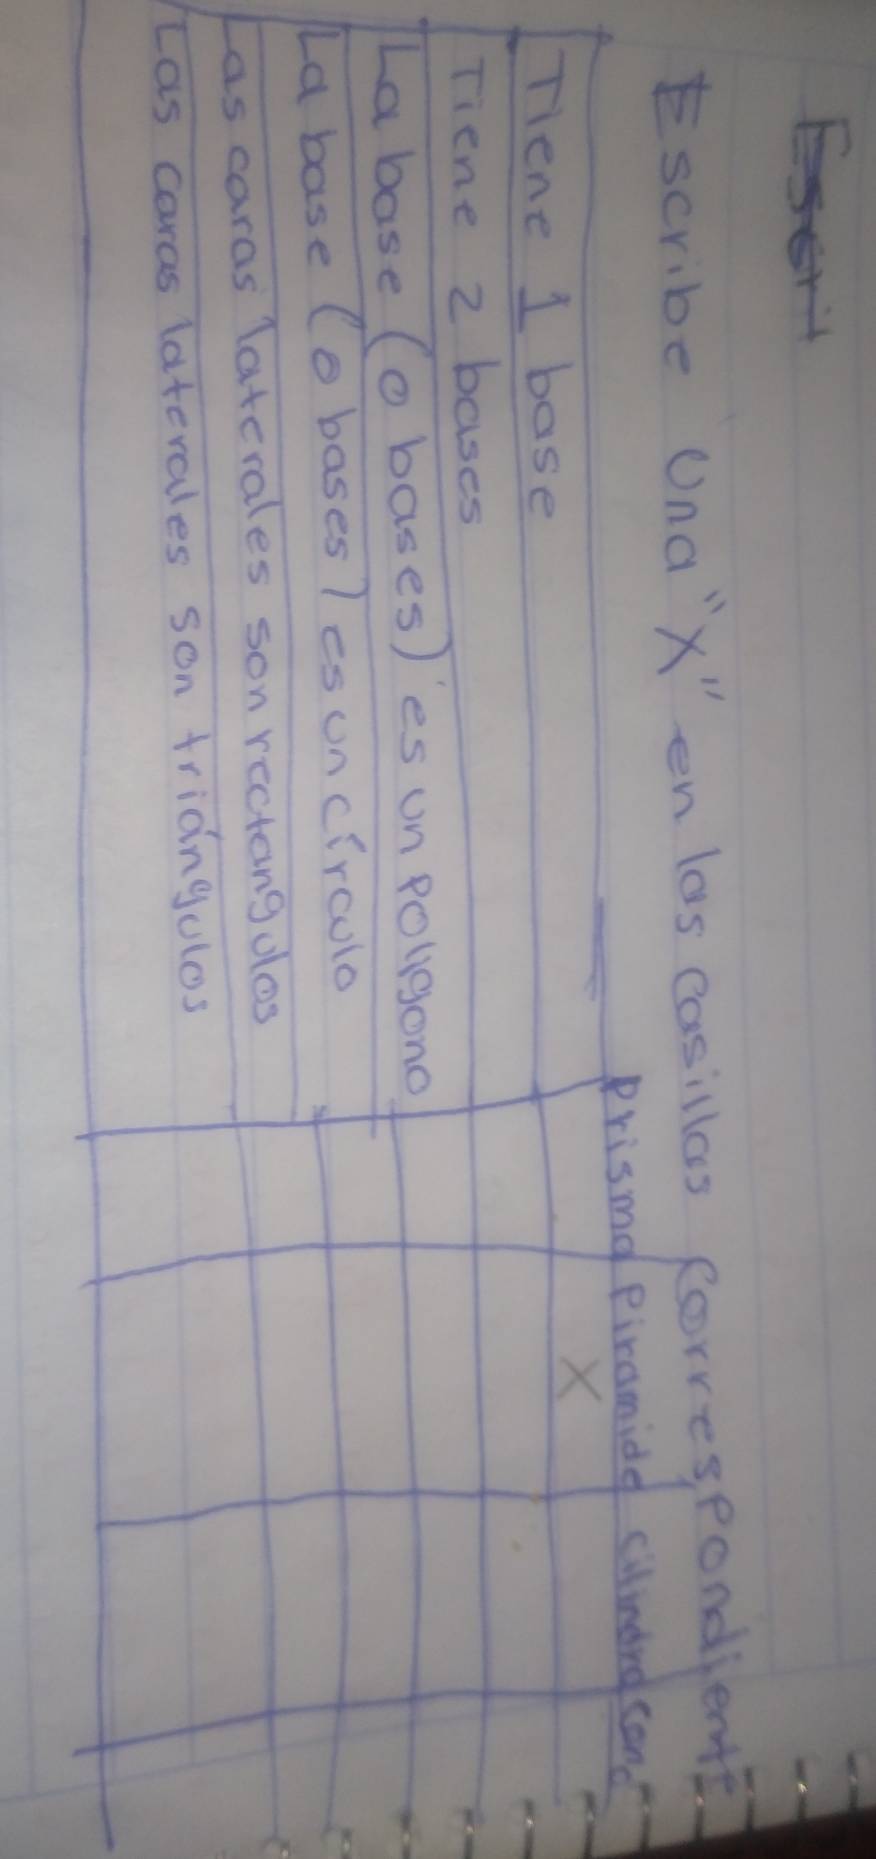 Escri
Escribe una "X" en las casillas correspondiente
Prisma Piramide cilindro cono
Tiene 1 base X
Tiene 2 bases
La base (o bases) es un poligono
La base (o bases) es un círculo
Las caras laterales son rectangulos
Las caras laterales son triángulos